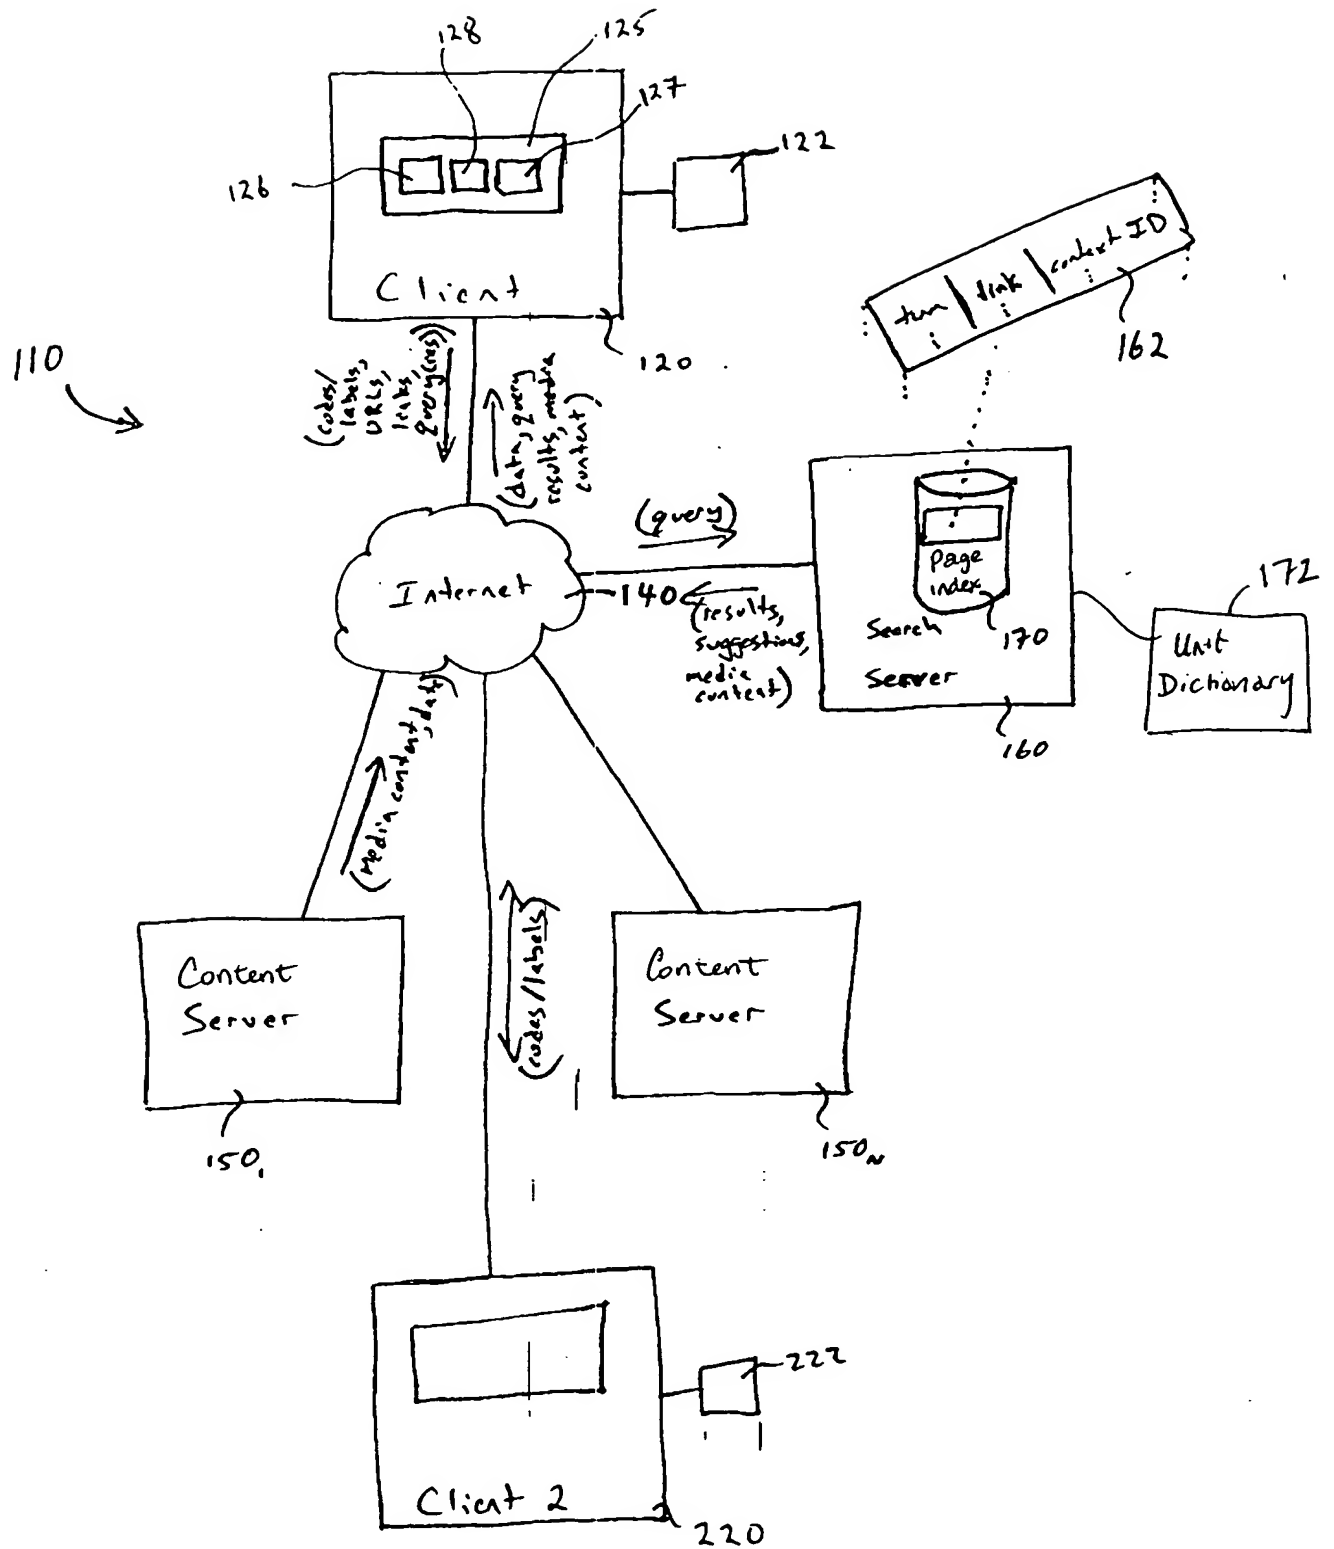 128
125
127
126
122
Client
120
110
(codes/
labels,
URLs,
links,
query(ies))
(data, query
results, media
content)
term
link
context ID
162
Internet
140
(query)
(results,
suggestions,
media
content)
Page
index
170
Search
Server
160
172
Unit
Dictionary
(Media content, data)
(codes/labels)
Content
Server
150₁
Content
Server
150N
222
Client 2
220